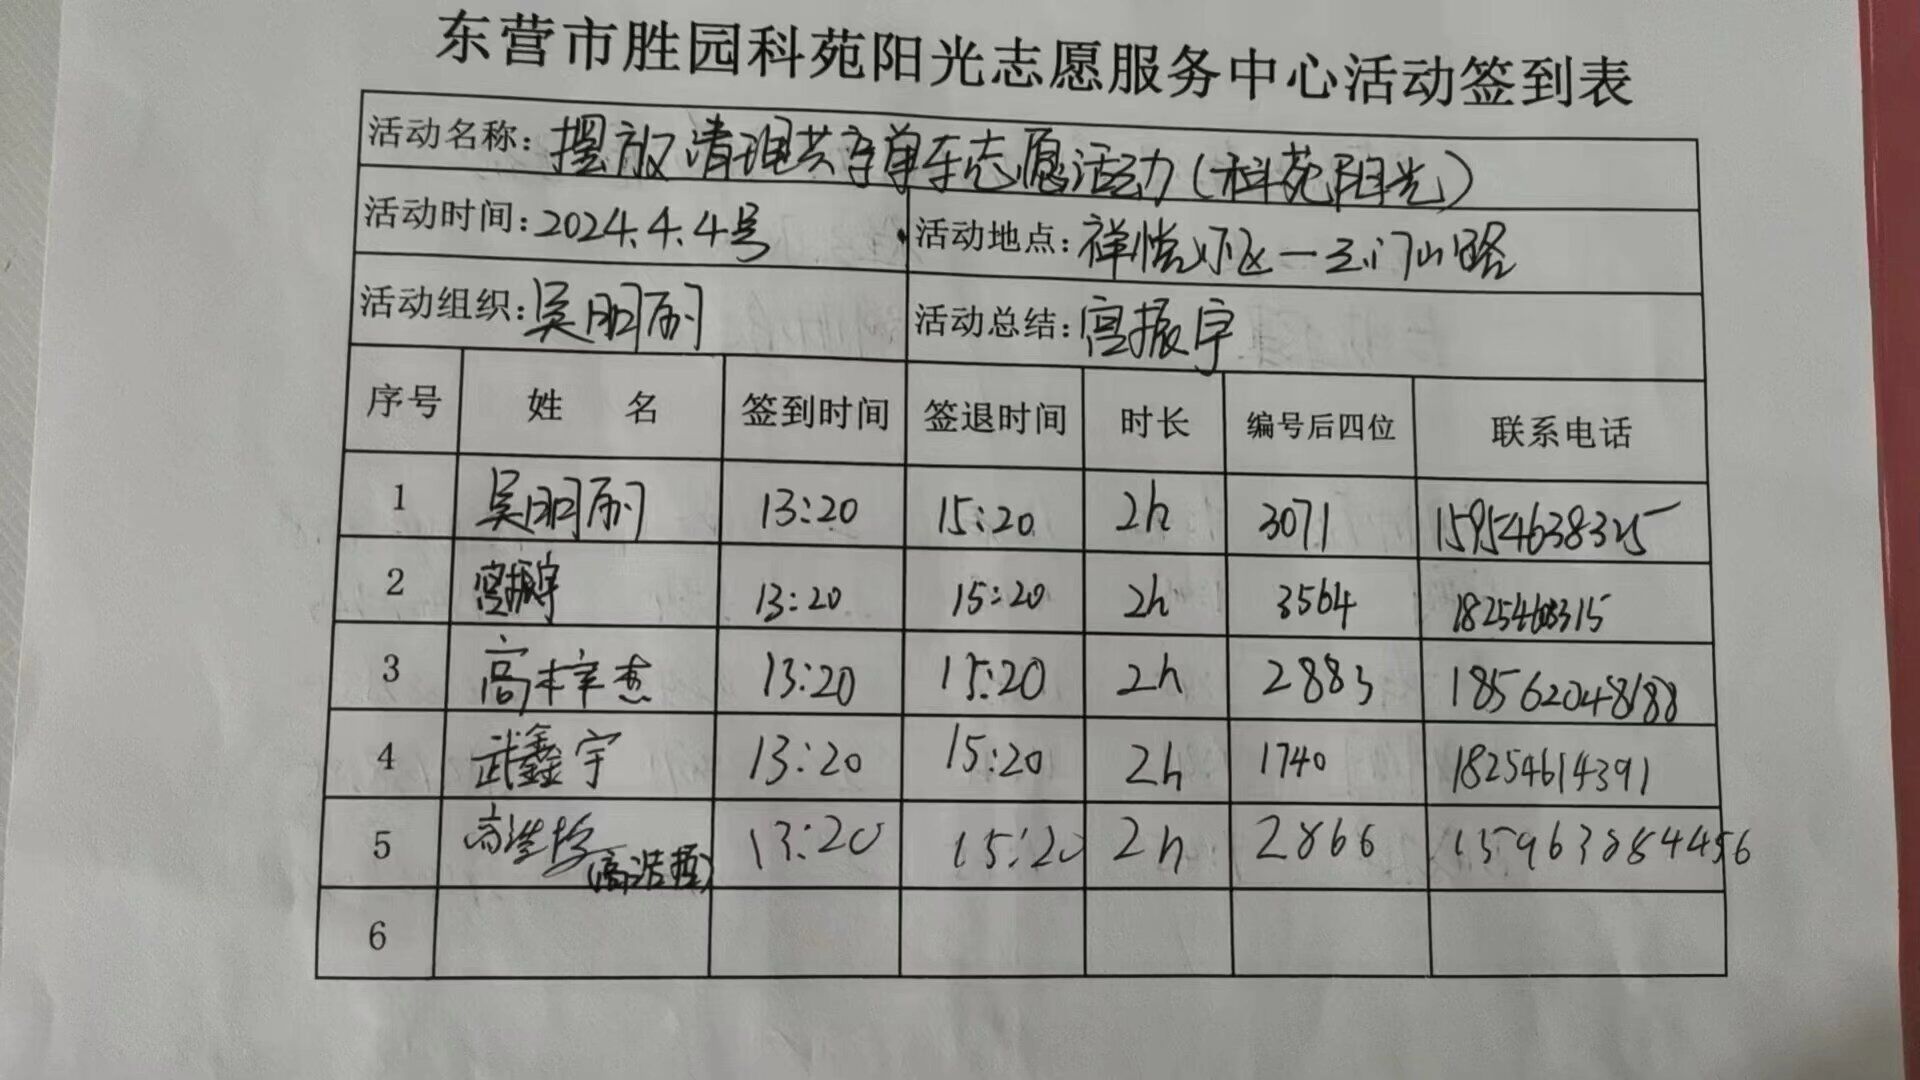 东营市胜园科苑阳光志愿服务中心活动签到表
活动名称: 摆放清理共享单车志愿活动(科苑阳光)
活动时间: 2024.4.4号 活动地点: 祥悦小区一三门山路
活动组织: 吴明丽 活动总结: 宫振宇
序号 姓 名 签到时间 签退时间 时长 编号后四位 联系电话
1 吴明丽 13:20 15:20 2h 3071 15954638325
2 宫振宇 13:20 15:20 2h 3564
3 高梓杰 13:20 15:20 2h 2883 18562048188
4 武鑫宇 13:20 15:20 2h 1740 18254614391
5 高浩哲(高浩哲) 13:20 15:20 2h 2866
6